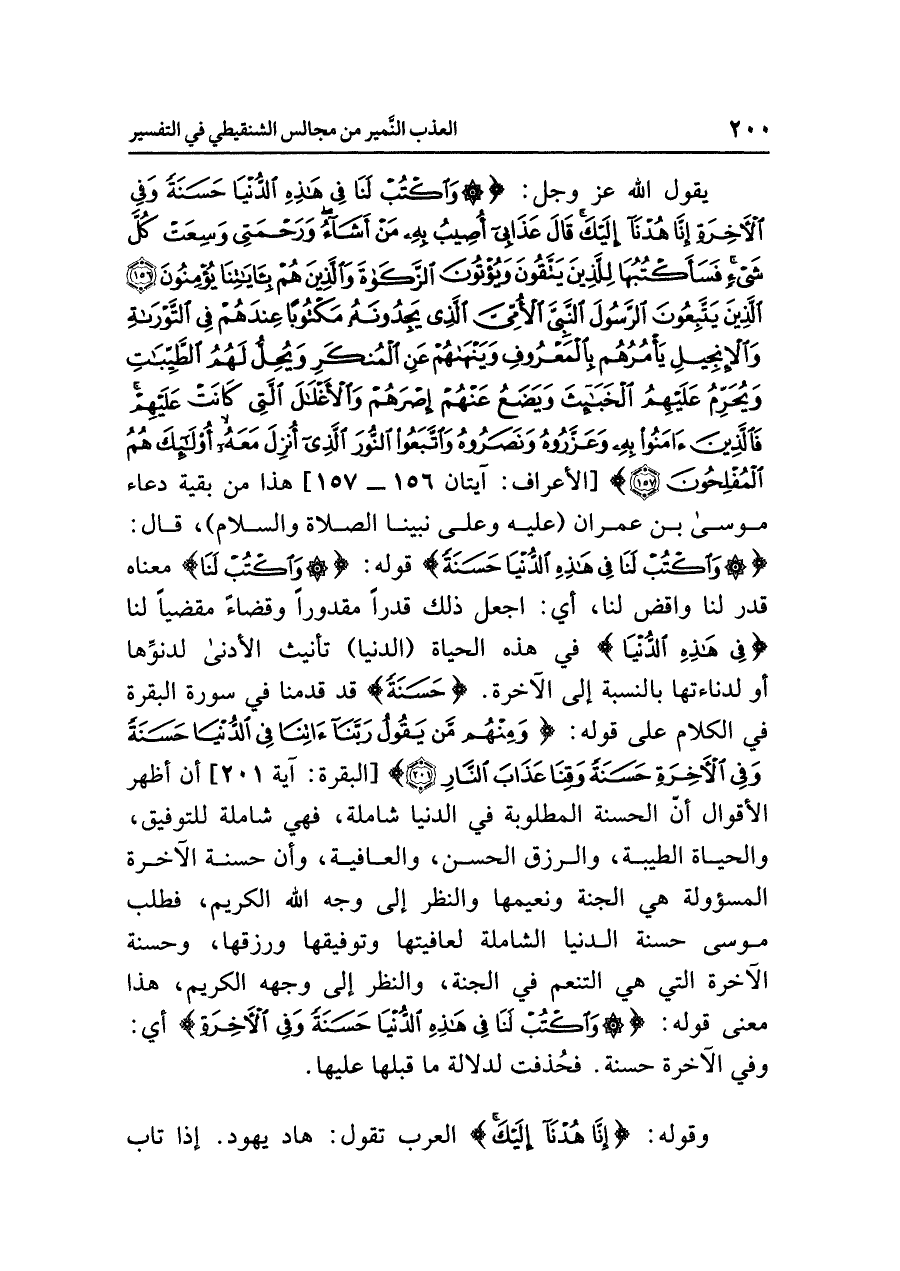 ٢٠٠ العذب النَّمير من مجالس الشنقيطي في التفسير
يقول الله عز وجل: ﴿ ۞ وَٱكْتُبْ لَنَا فِى هَٰذِهِ ٱلدُّنْيَا حَسَنَةً وَفِى
ٱلْءَاخِرَةِ إِنَّا هُدْنَآ إِلَيْكَ ۚ قَالَ عَذَابِىٓ أُصِيبُ بِهِۦ مَنْ أَشَآءُ ۖ وَرَحْمَتِى وَسِعَتْ كُلَّ
شَىْءٍ ۚ فَسَأَكْتُبُهَا لِلَّذِينَ يَتَّقُونَ وَيُؤْتُونَ ٱلزَّكَوٰةَ وَٱلَّذِينَ هُم بِـَٔايَٰتِنَا يُؤْمِنُونَ ١٥٦
ٱلَّذِينَ يَتَّبِعُونَ ٱلرَّسُولَ ٱلنَّبِىَّ ٱلْأُمِّىَّ ٱلَّذِى يَجِدُونَهُۥ مَكْتُوبًا عِندَهُمْ فِى ٱلتَّوْرَىٰةِ
وَٱلْإِنجِيلِ يَأْمُرُهُم بِٱلْمَعْرُوفِ وَيَنْهَىٰهُمْ عَنِ ٱلْمُنكَرِ وَيُحِلُّ لَهُمُ ٱلطَّيِّبَٰتِ
وَيُحَرِّمُ عَلَيْهِمُ ٱلْخَبَٰٓئِثَ وَيَضَعُ عَنْهُمْ إِصْرَهُمْ وَٱلْأَغْلَٰلَ ٱلَّتِى كَانَتْ عَلَيْهِمْ ۚ
فَٱلَّذِينَ ءَامَنُوا۟ بِهِۦ وَعَزَّرُوهُ وَنَصَرُوهُ وَٱتَّبَعُوا۟ ٱلنُّورَ ٱلَّذِىٓ أُنزِلَ مَعَهُۥٓ ۙ أُو۟لَٰٓئِكَ هُمُ
ٱلْمُفْلِحُونَ ١٥٧ ﴾ [الأعراف: آيتان ١٥٦ ــ ١٥٧] هذا من بقية دعاء
موسىٰ بن عمران (عليه وعلى نبينا الصلاة والسلام)، قال:
﴿ ۞ وَٱكْتُبْ لَنَا فِى هَٰذِهِ ٱلدُّنْيَا حَسَنَةً ﴾ قوله: ﴿ ۞ وَٱكْتُبْ لَنَا ﴾ معناه
قدر لنا واقض لنا، أي: اجعل ذلك قدراً مقدوراً وقضاءً مقضياً لنا
﴿ فِى هَٰذِهِ ٱلدُّنْيَا ﴾ في هذه الحياة (الدنيا) تأنيث الأدنىٰ لدنوِّها
أو لدناءتها بالنسبة إلى الآخرة. ﴿ حَسَنَةً ﴾ قد قدمنا في سورة البقرة
في الكلام على قوله: ﴿ وَمِنْهُم مَّن يَقُولُ رَبَّنَآ ءَاتِنَا فِى ٱلدُّنْيَا حَسَنَةً
وَفِى ٱلْءَاخِرَةِ حَسَنَةً وَقِنَا عَذَابَ ٱلنَّارِ ٢٠١ ﴾ [البقرة: آية ٢٠١] أن أظهر
الأقوال أنّ الحسنة المطلوبة في الدنيا شاملة، فهي شاملة للتوفيق،
والحياة الطيبة، والرزق الحسن، والعافية، وأن حسنة الآخرة
المسؤولة هي الجنة ونعيمها والنظر إلى وجه الله الكريم، فطلب
موسى حسنة الدنيا الشاملة لعافيتها وتوفيقها ورزقها، وحسنة
الآخرة التي هي التنعم في الجنة، والنظر إلى وجهه الكريم، هذا
معنى قوله: ﴿ ۞ وَٱكْتُبْ لَنَا فِى هَٰذِهِ ٱلدُّنْيَا حَسَنَةً وَفِى ٱلْءَاخِرَةِ ﴾ أي:
وفي الآخرة حسنة. فحُذفت لدلالة ما قبلها عليها.
وقوله: ﴿ إِنَّا هُدْنَآ إِلَيْكَ ۚ ﴾ العرب تقول: هاد يهود. إذا تاب